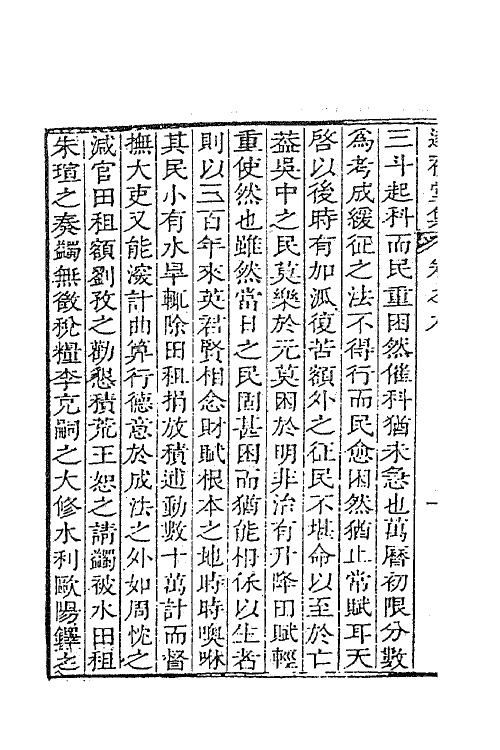 三斗起科而民重困然催科猶未急也萬曆初限分數
爲考成緩征之法不得行而民愈困然猶止常賦耳天
啓以後時有加派復苦額外之征民不堪命以至於亡
葢吳中之民莫樂於元莫困於明非治有升降田賦輕
重使然也雖然當日之民固甚困而猶能相係以生者
則以三百年來英君賢相念財賦根本之地時時噢咻
其民小有水旱輒除田租捐放積逋動數十萬計而督
撫大吏又能湥計曲算行德意於成法之外如周忱之
減官田租額劉孜之勸懇積荒王恕之請蠲被水田租
朱瑄之奏蠲無徵稅糧李克嗣之大修水利歐陽鐸之